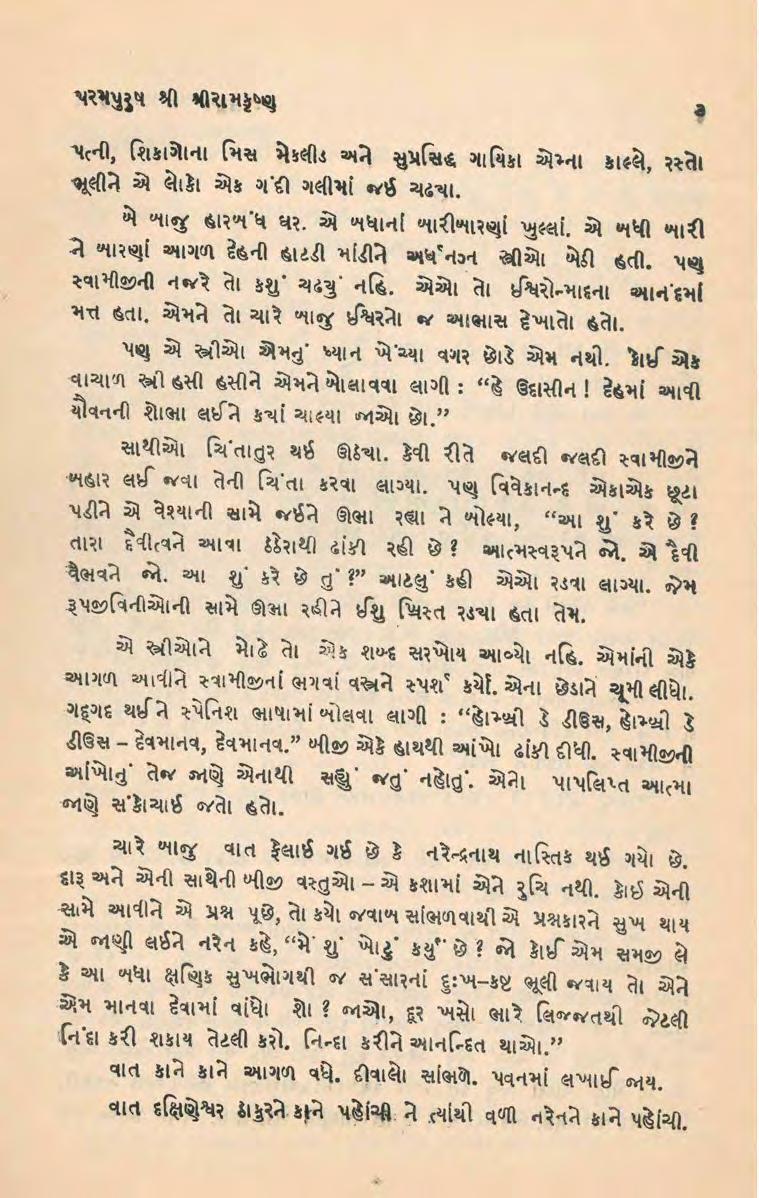 પરમપુરુષ શ્રી શ્રીરામકૃષ્ણ
૩
પત્ની, શિકાગોના મિસ મેકલીડ અને સુપ્રસિદ્ધ ગાયિકા એમ્ના કાલ્લે, રસ્તો
ભૂલીને એ લોકો એક ગંદી ગલીમાં જઈ ચઢયા.
બે બાજુ હારબંધ ઘર. એ બધાનાં બારીબારણાં ખુલ્લાં. એ બધી બારી
ને બારણાં આગળ દેહની હાટડી માંડીને અર્ધનગ્ન સ્ત્રીઓ બેઠી હતી. પણ
સ્વામીજીની નજરે તો કશું ચઢયું નહિ. એઓ તો ઈશ્વરોન્માદના આનંદમાં
મત્ત હતા. એમને તો ચારે બાજુ ઈશ્વરનો જ આભાસ દેખાતો હતો.
પણ એ સ્ત્રીઓ એમનું ધ્યાન ખેંચ્યા વગર છોડે એમ નથી. કોઈ એક
વાચાળ સ્ત્રી હસી હસીને એમને બોલાવવા લાગી : “હે ઉદાસીન ! દેહમાં આવી
યૌવનની શોભા લઈને કયાં ચાલ્યા જાઓ છો.”
સાથીઓ ચિંતાતુર થઈ ઊઠયા. કેવી રીતે જલદી જલદી સ્વામીજીને
બહાર લઈ જવા તેની ચિંતા કરવા લાગ્યા. પણ વિવેકાનન્દ એકાએક છૂટા
પડીને એ વેશ્યાની સામે જઈને ઊભા રહ્યા ને બોલ્યા, “આ શું કરે છે ?
તારા દૈવીત્વને આવા ઠઠેરાથી ઢાંકી રહી છે ? આત્મસ્વરૂપને જો. એ દૈવી
વૈભવને જો. આ શું કરે છે તું ?” આટલું કહી એઓ રડવા લાગ્યા. જેમ
રૂપજીવિનીઓની સામે ઊભા રહીને ઈશુ ખ્રિસ્ત રડયા હતા તેમ.
એ સ્ત્રીઓને મોઢે તો એક શબ્દ સરખોય આવ્યો નહિ. એમાંની એકે
આગળ આવીને સ્વામીજીનાં ભગવાં વસ્ત્રને સ્પર્શ કર્યો. એના છેડાને ચૂમી લીધો.
ગદ્ગદ થઈને સ્પેનિશ ભાષામાં બોલવા લાગી : “હોમ્બ્રી ડે ડીઉસ, હોમ્બ્રી ડે
ડીઉસ – દેવમાનવ, દેવમાનવ.” બીજી એકે હાથથી આંખો ઢાંકી દીધી. સ્વામીજીની
આંખોનું તેજ જાણે એનાથી સહ્યું જતું નહોતું. એનો પાપલિપ્ત આત્મા
જાણે સંકોચાઈ જતો હતો.
ચારે બાજુ વાત ફેલાઈ ગઈ છે કે નરેન્દ્રનાથ નાસ્તિક થઈ ગયો છે.
દારૂ અને એની સાથેની બીજી વસ્તુઓ – એ કશામાં એને રુચિ નથી. કોઈ એની
સામે આવીને એ પ્રશ્ન પૂછે, તો કયો જવાબ સાંભળવાથી એ પ્રશ્નકારને સુખ થાય
એ જાણી લઈને નરેન કહે, “મેં શું ખોટું કર્યું છે ? જો કોઈ એમ સમજી લે
કે આ બધા ક્ષણિક સુખભોગથી જ સંસારનાં દુઃખ–કષ્ટ ભૂલી જવાય તો એને
એમ માનવા દેવામાં વાંધો શો ? જાઓ, દૂર ખસો ભારે લિજ્જતથી જેટલી
નિંદા કરી શકાય તેટલી કરો. નિન્દા કરીને આનન્દિત થાઓ.”
વાત કાને કાને આગળ વધે. દીવાલો સાંભળે. પવનમાં લખાઈ જાય.
વાત દક્ષિણેશ્વર ઠાકુરને કાને પહોંચી ને ત્યાંથી વળી નરેનને કાને પહોંચી.